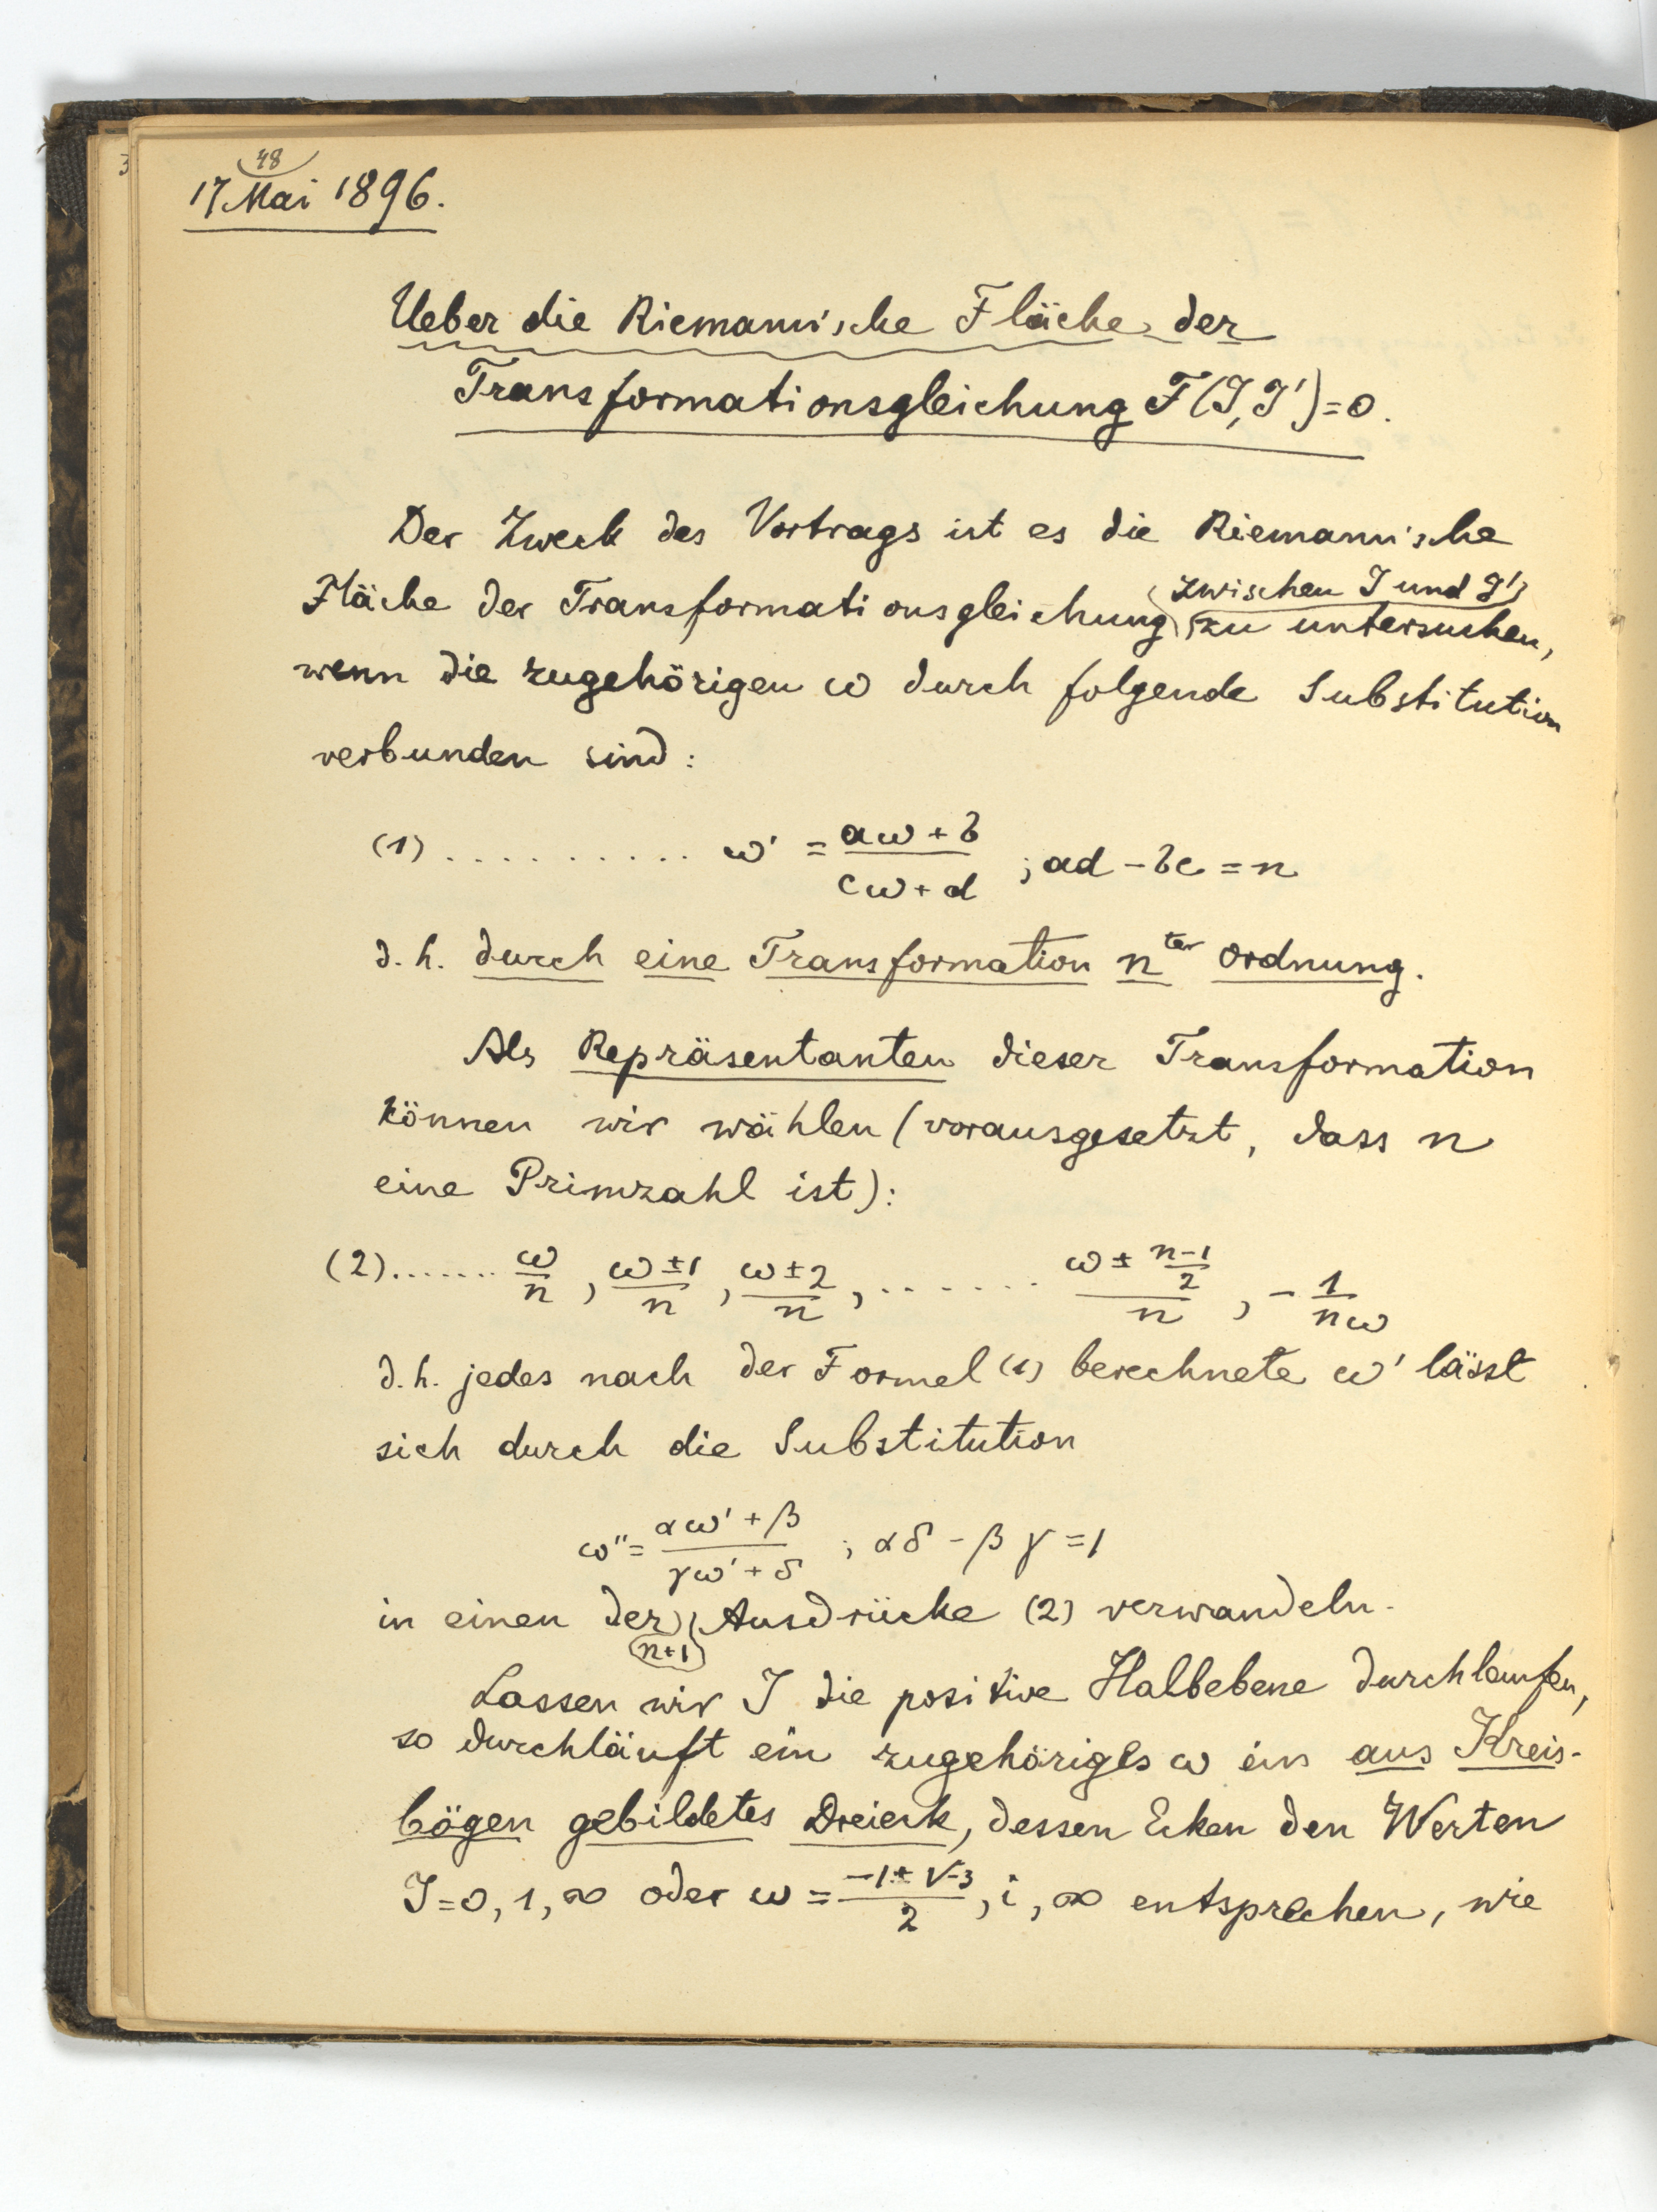 48
17 Mai 1896.
Ueber die Riemannische Fläche der
Transformationsgleichung F(J, J') = 0.
Der Zweck des Vortrags ist es die Riemannische
Fläche der Transformationsgleichung zwischen J und J' zu untersuchen,
wenn die zugehörigen ω durch folgende Substitution
verbunden sind:
(1) .......... ω' = (aω + b)/(cω + d) ; ad - bc = n
d. h. durch eine Transformation n^ter Ordnung.
Als Repräsentanten dieser Transformation
können wir wählen (vorausgesetzt, dass n
eine Primzahl ist):
(2) ....... ω/n , (ω ± 1)/n , (ω ± 2)/n , ....... (ω ± (n-1)/2)/n , - 1/(nω)
d. h. jedes nach der Formel (1) berechnete ω' lässt
sich durch die Substitution
ω'' = (αω' + β)/(γω' + δ) ; αδ - βγ = 1
in einen der (n+1) Ausdrücke (2) verwandeln.
Lassen wir J die positive Halbebene durchlaufen,
so durchläuft ein zugehöriges ω ein aus Kreis-
bögen gebildetes Dreieck, dessen Ecken den Werten
J = 0, 1, ∞ oder ω = (-1 ± √-3)/2, i, ∞ entsprechen, wie